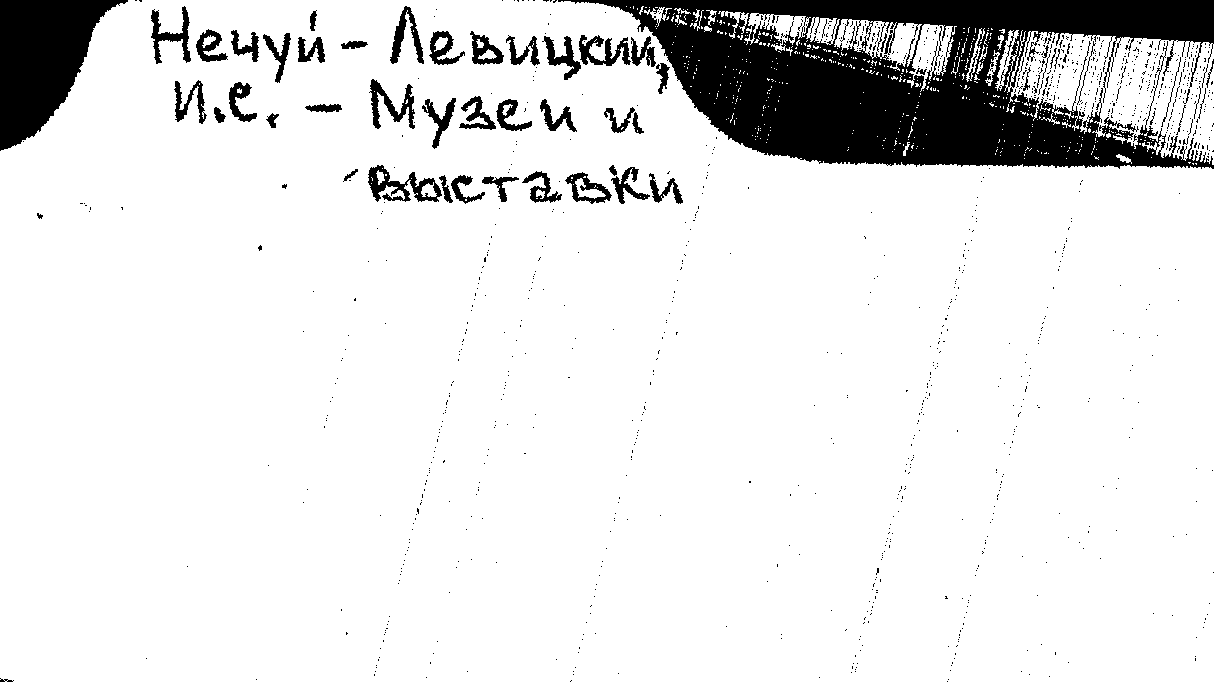 Нечуй - Левицкий,
И.С. - Музеи и
выставки